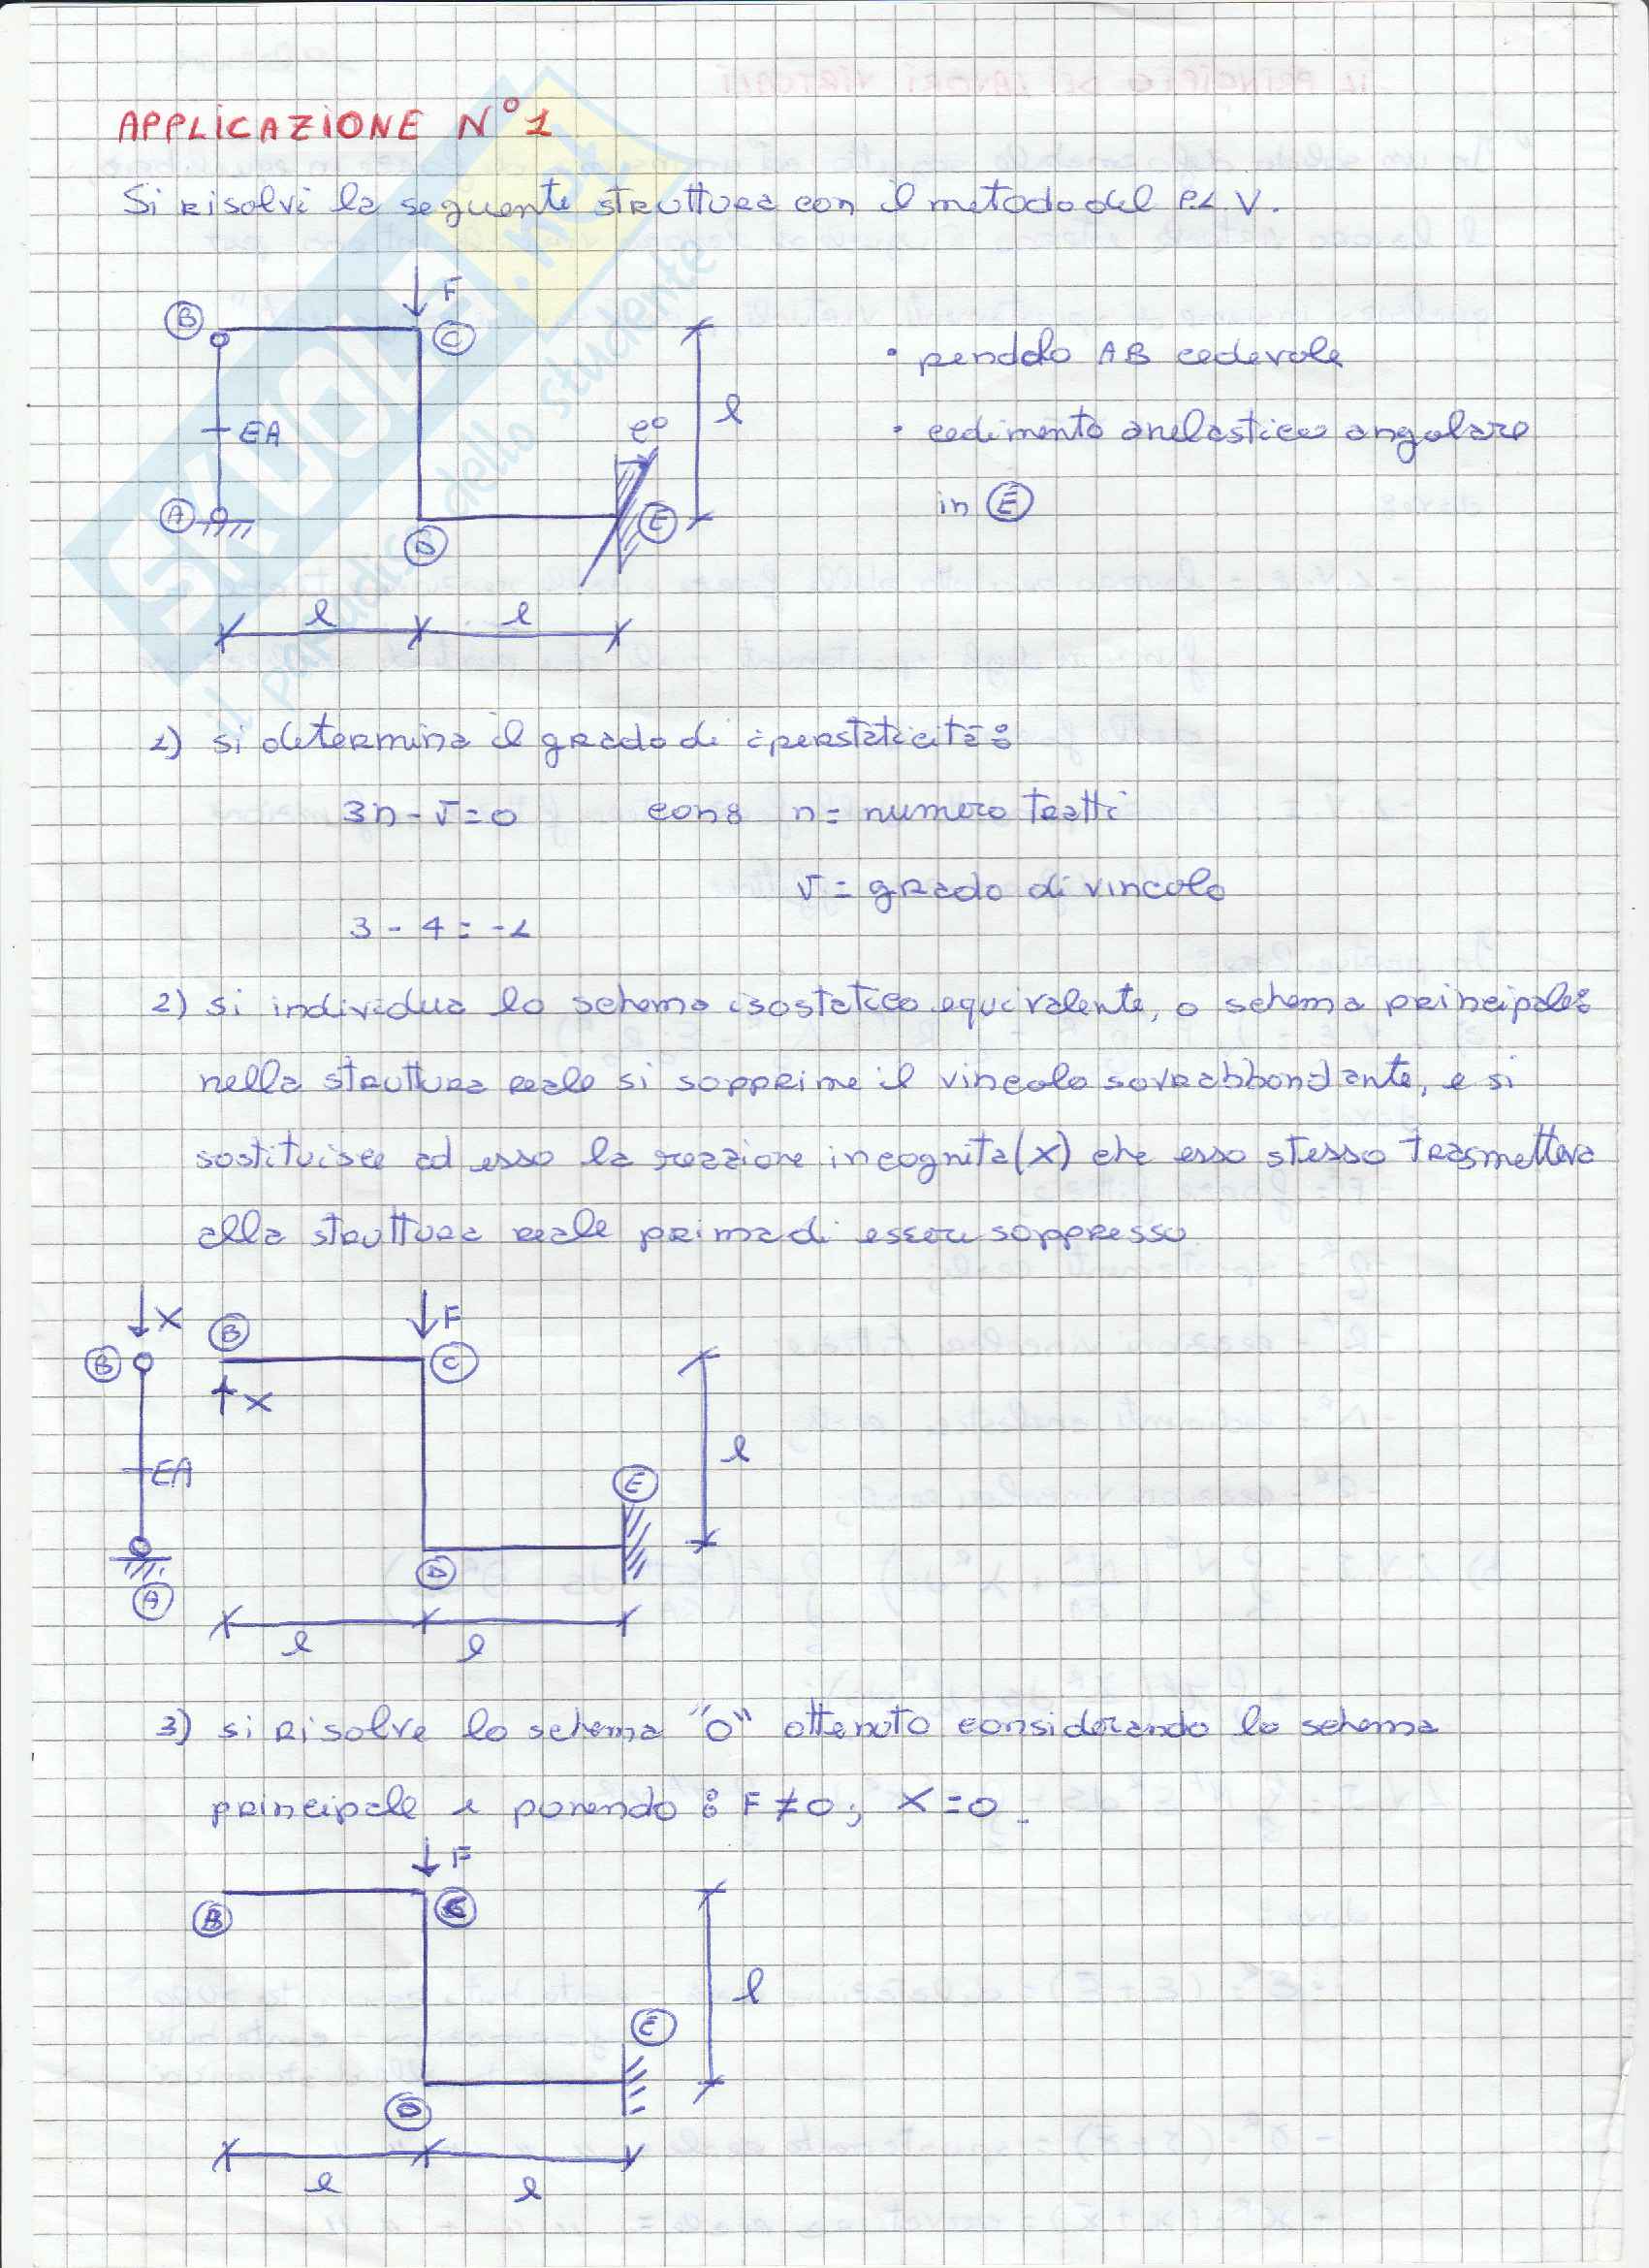 APPLICAZIONE N°1
Si risolvi la seguente struttura con il metodo del P.L.V.
F
B
C
• pendolo AB cedevole
l
φ°
EA
• cedimento anelastico angolare
in E
A
E
D
l
l
1) si determina il grado di iperstaticità:
3n-v=0 con: n= numero tratti
v= grado di vincolo
3-4=-1
2) si individua lo schema isostatico equivalente, o schema principale:
nella struttura reale si sopprime il vincolo sovrabbondante, e si
sostituisce ad esso la reazione incognita (x) che esso stesso trasmetteva
alla struttura reale prima di essere soppresso
X
B
F
B
C
X
l
EA
E
D
A
l
l
3) si risolve lo schema "0" ottenuto considerando lo schema
principale e ponendo: F≠0; X=0.
F
B
C
l
E
D
l
l
SKUOLA.net
il paradiso dello studente